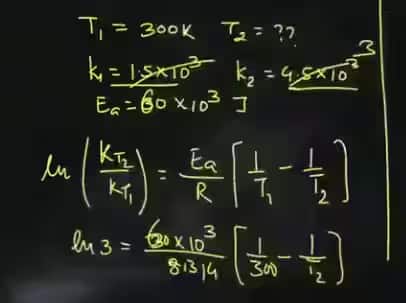 T₁ = 300K T₂ = ??
k₁ = 1.5×10³ k₂ = 4.5×10³ 3
Ea = 60 × 10³ J
ln (K_T₂ / K_T₁) = Ea / R [1/T₁ - 1/T₂]
ln 3 = 60×10³ / 8.314 [1/300 - 1/T₂]